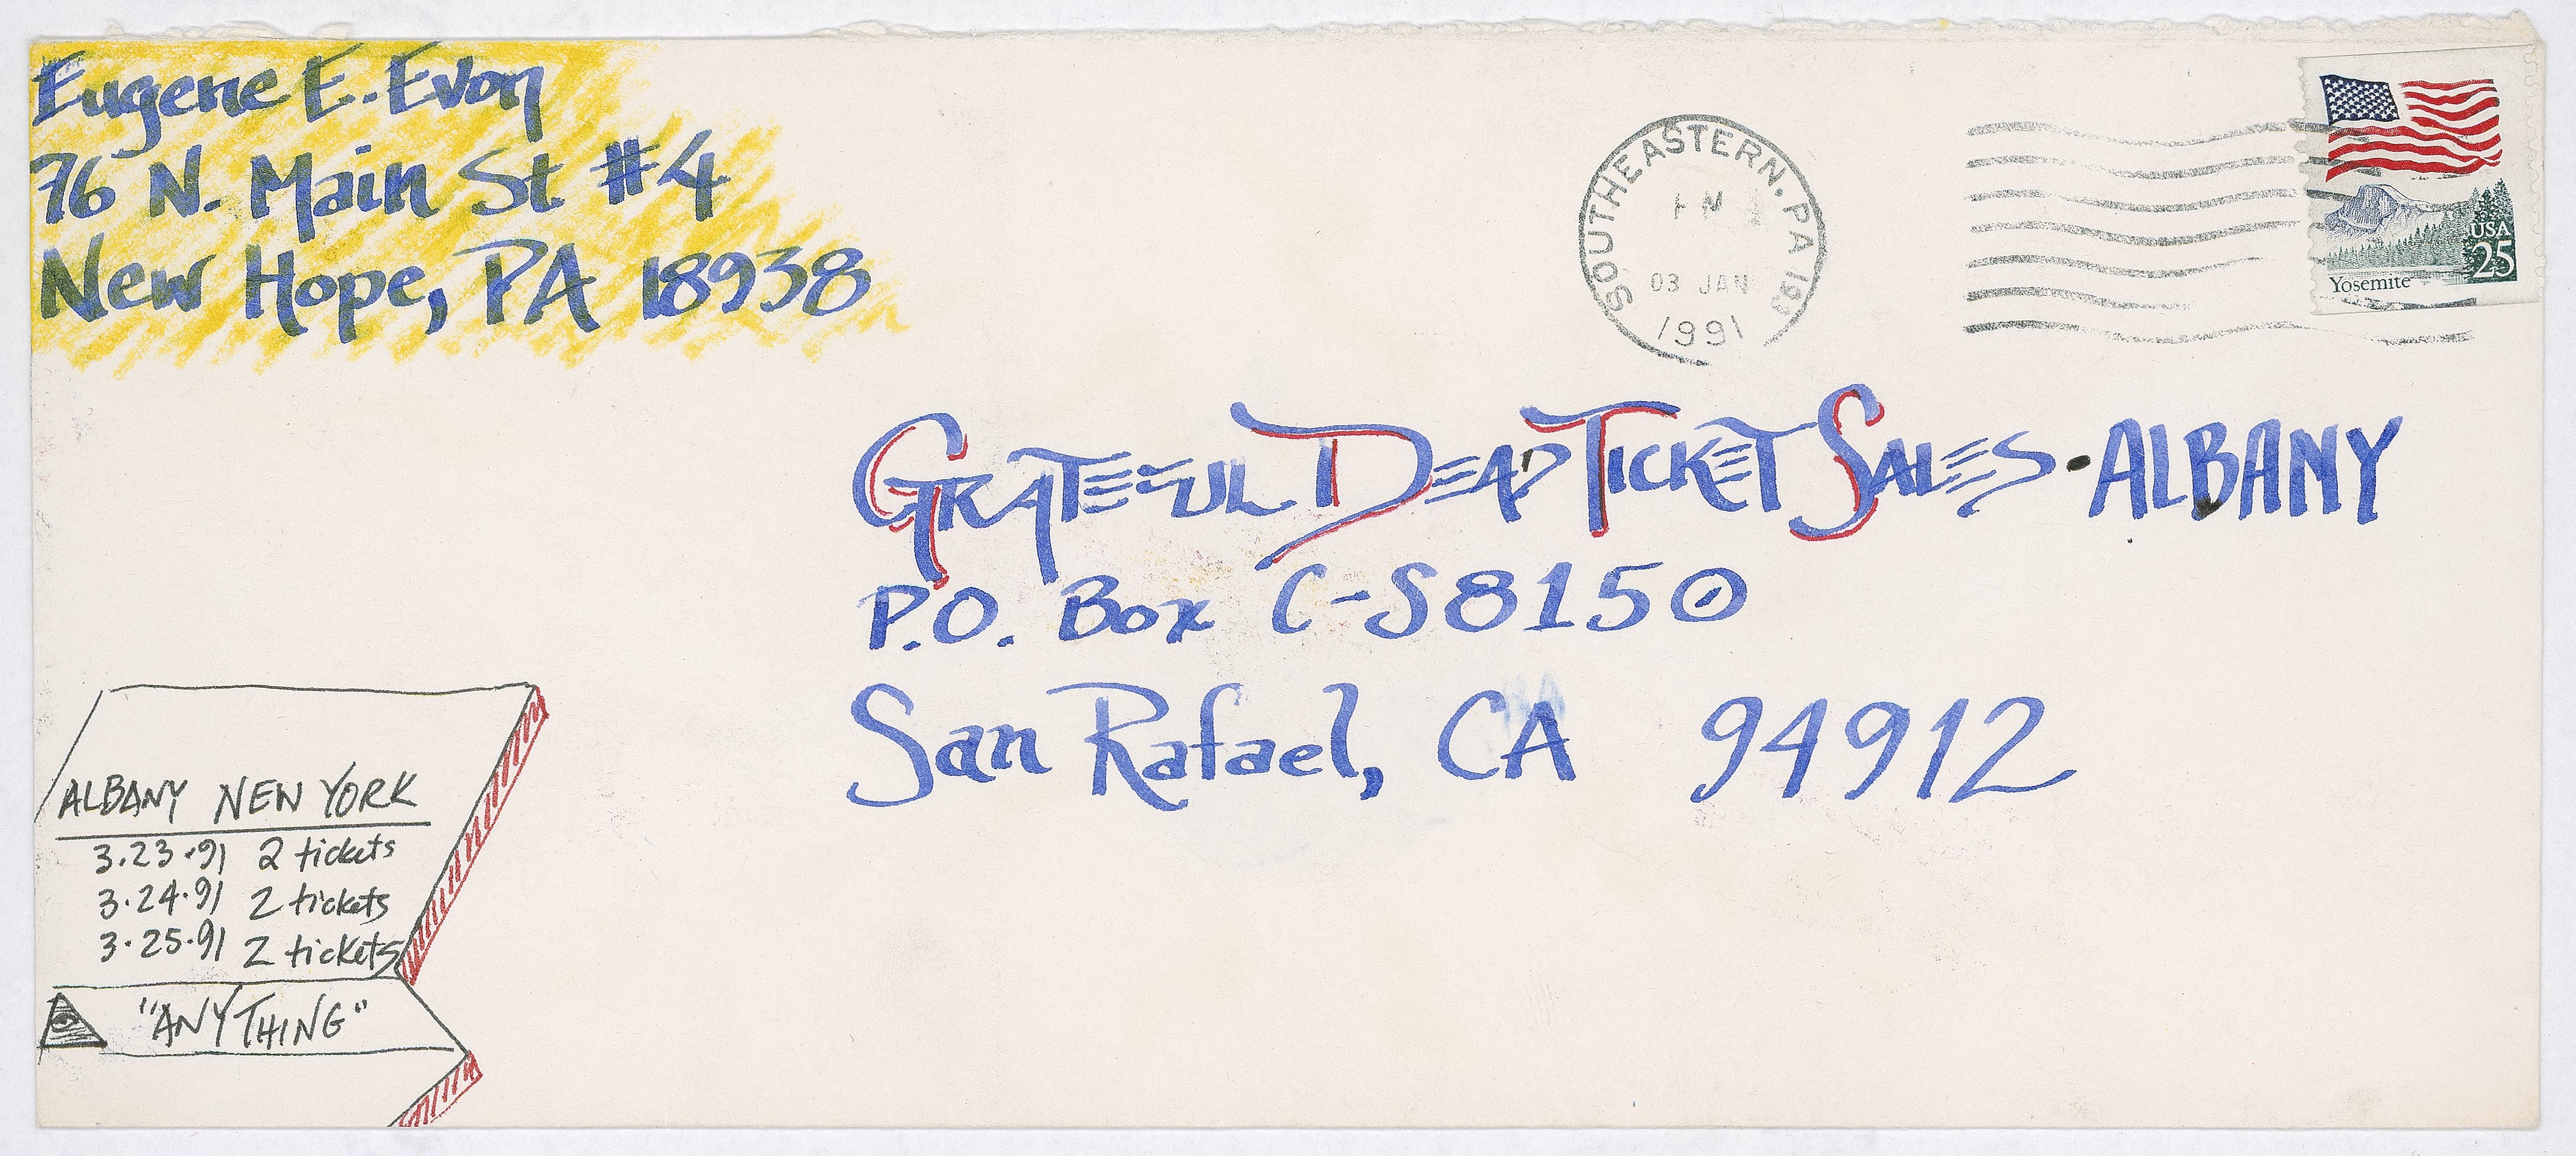 Eugene E. Evon
76 N. Main St #4
New Hope, PA 18938
SOUTHEASTERN, PA 193
PM
03 JAN
1991
USA
25
Yosemite
GRATEFUL DEAD TICKET SALES • ALBANY
P.O. Box C-S8150
San Rafael, CA 94912
ALBANY NEW YORK
3.23.91 2 tickets
3.24.91 2 tickets
3.25.91 2 tickets
"ANYTHING"